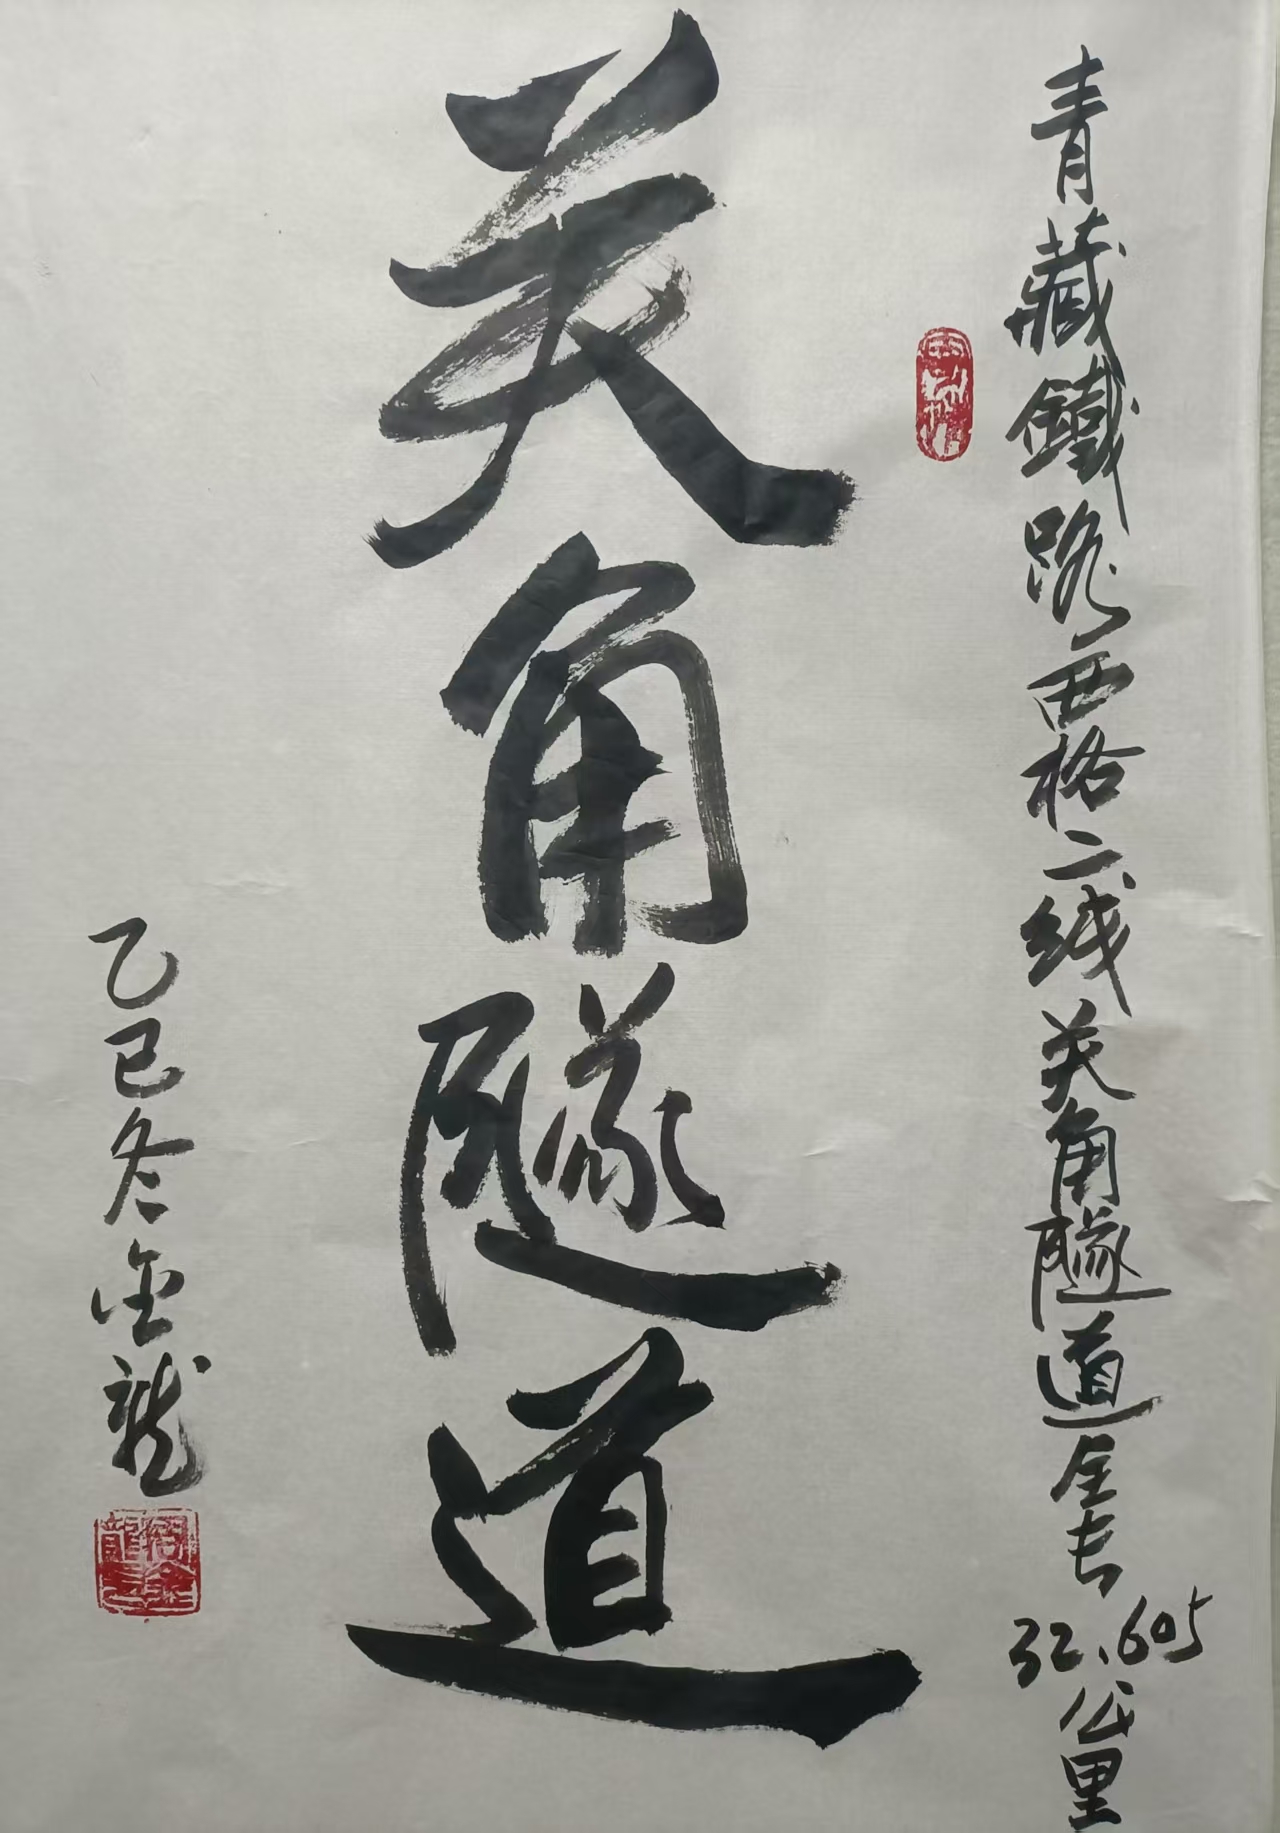 青藏鐵路西格二线关角隧道全长32.605公里
关角隧道
乙巳冬金龍